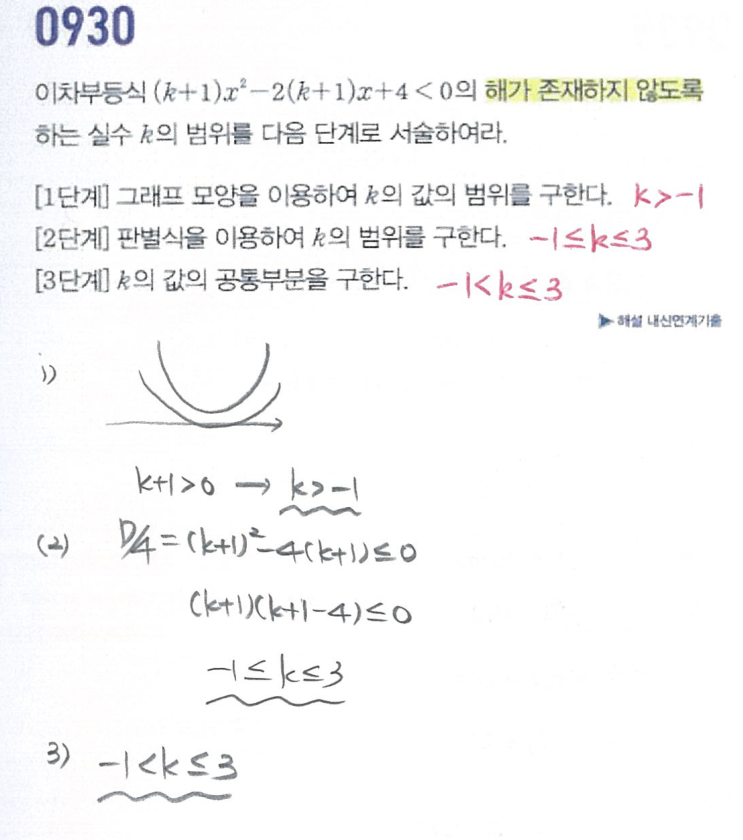 0930
이차부등식 (k+1)x²-2(k+1)x+4<0의 해가 존재하지 않도록
하는 실수 k의 범위를 다음 단계로 서술하여라.
[1단계] 그래프 모양을 이용하여 k의 값의 범위를 구한다. k>-1
[2단계] 판별식을 이용하여 k의 범위를 구한다. -1≤k≤3
[3단계] k의 값의 공통부분을 구한다. -1<k≤3
▶ 해설 내신연계기출
1)
k+1>0 → k>-1
(2) D/4=(k+1)²-4(k+1)≤0
(k+1)(k+1-4)≤0
-1≤k≤3
3) -1<k≤3